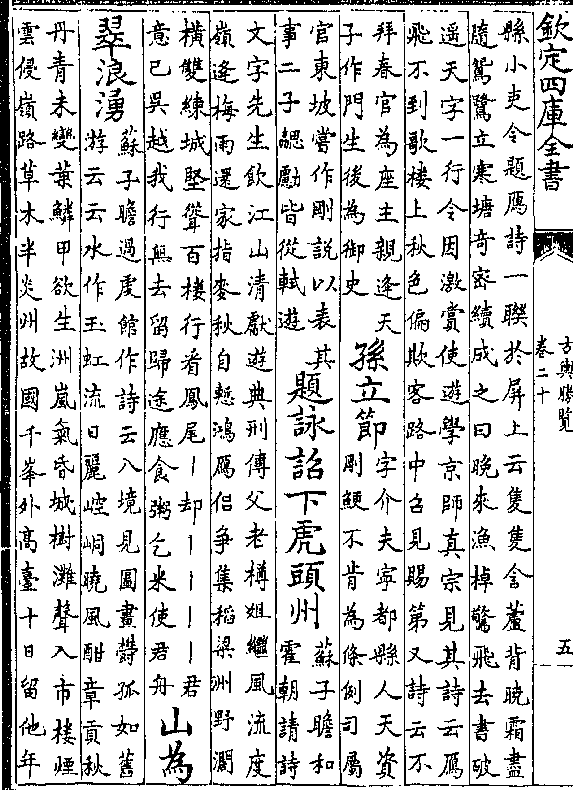 欽定四庫全書
方輿勝覽
卷二十
五
縣小吏令題鴈詩一聯於屏上云隻隻含蘆背曉霜盡
隨鴛鷺立寒塘竒密續成之曰晚來漁棹驚飛去書破
遥天字一行令因激賞使遊學京師真宗見其詩云鴈
飛不到歌樓上秋色偏欺客路中召見賜第又詩云不
拜春官為座主親逢天
子作門生後為御史
孫立節
字介夫寧都縣人天資
剛鯁不肯為條例司屬
官東坡嘗作剛說以表其
事二子勰勵皆從軾遊
題詠詔下虎頭州
蘇子瞻和
霍朝請詩
文字先生飲江山清獻遊典刑傳父老樽俎繼風流度
嶺逢梅雨還家指麥秋自慙鴻鴈侣爭集稻粱洲野濶
橫雙練城堅聳百樓行看鳳尾丨却丨丨丨丨君
意已吳越我行無去留歸途應食粥乞米使君舟
山為
翠浪湧
蘇子瞻過虔館作詩云八境見圖畫鬱孤如舊
游云云水作玉虹流日麗崆峒曉風酣章貢秋
丹青未變葉鱗甲欲生洲嵐氣昏城樹灘聲入市樓煙
雲侵嶺路草木半炎州故國千峯外髙臺十日留他年